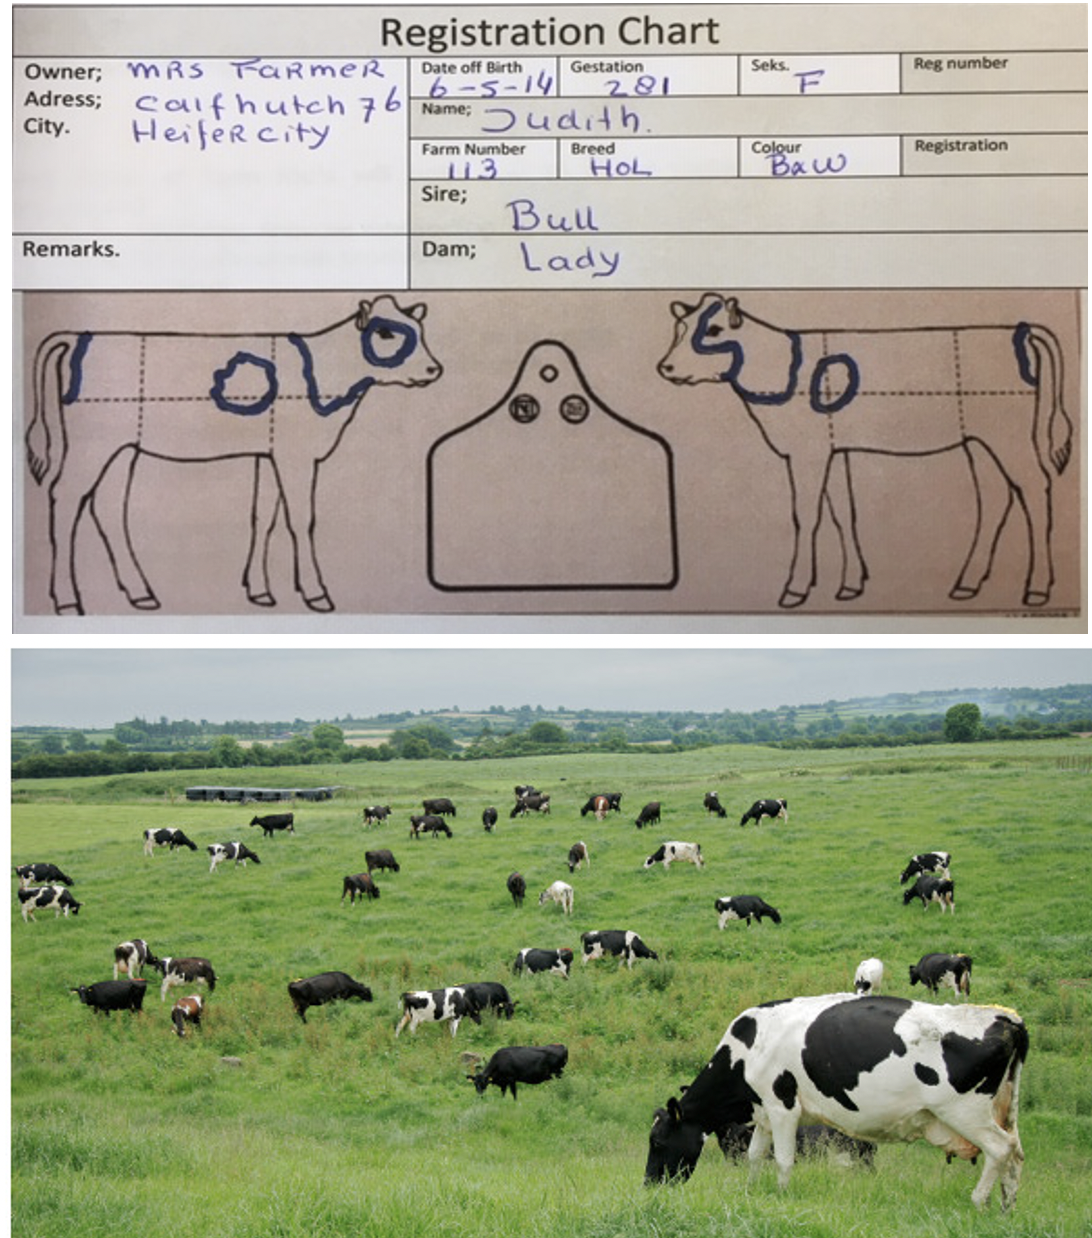 Registration Chart
Owner; MRS FARMER
Adress; Calfhutch 76
City. HeifeR city
Date off Birth 6-5-14
Gestation 281
Seks. F
Reg number
Name; Judith.
Farm Number 113
Breed HOL
Colour B&W
Registration
Sire; Bull
Remarks.
Dam; Lady